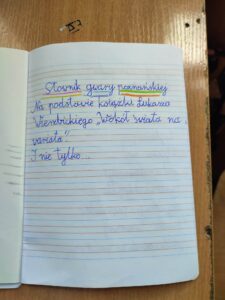 Słownik gwary poznańskiej
Na podstawie książki Łukasza
Wierzbickiego „Wokół świata na
wariata".
I nie tylko...